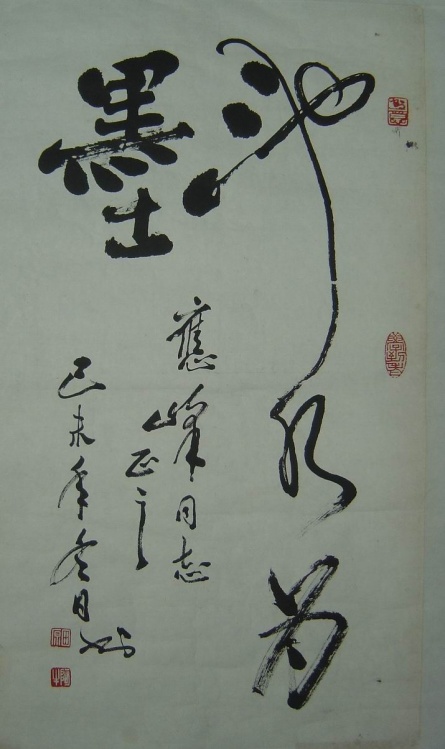 池水为
墨
應峰同志
正之
己未年冬月